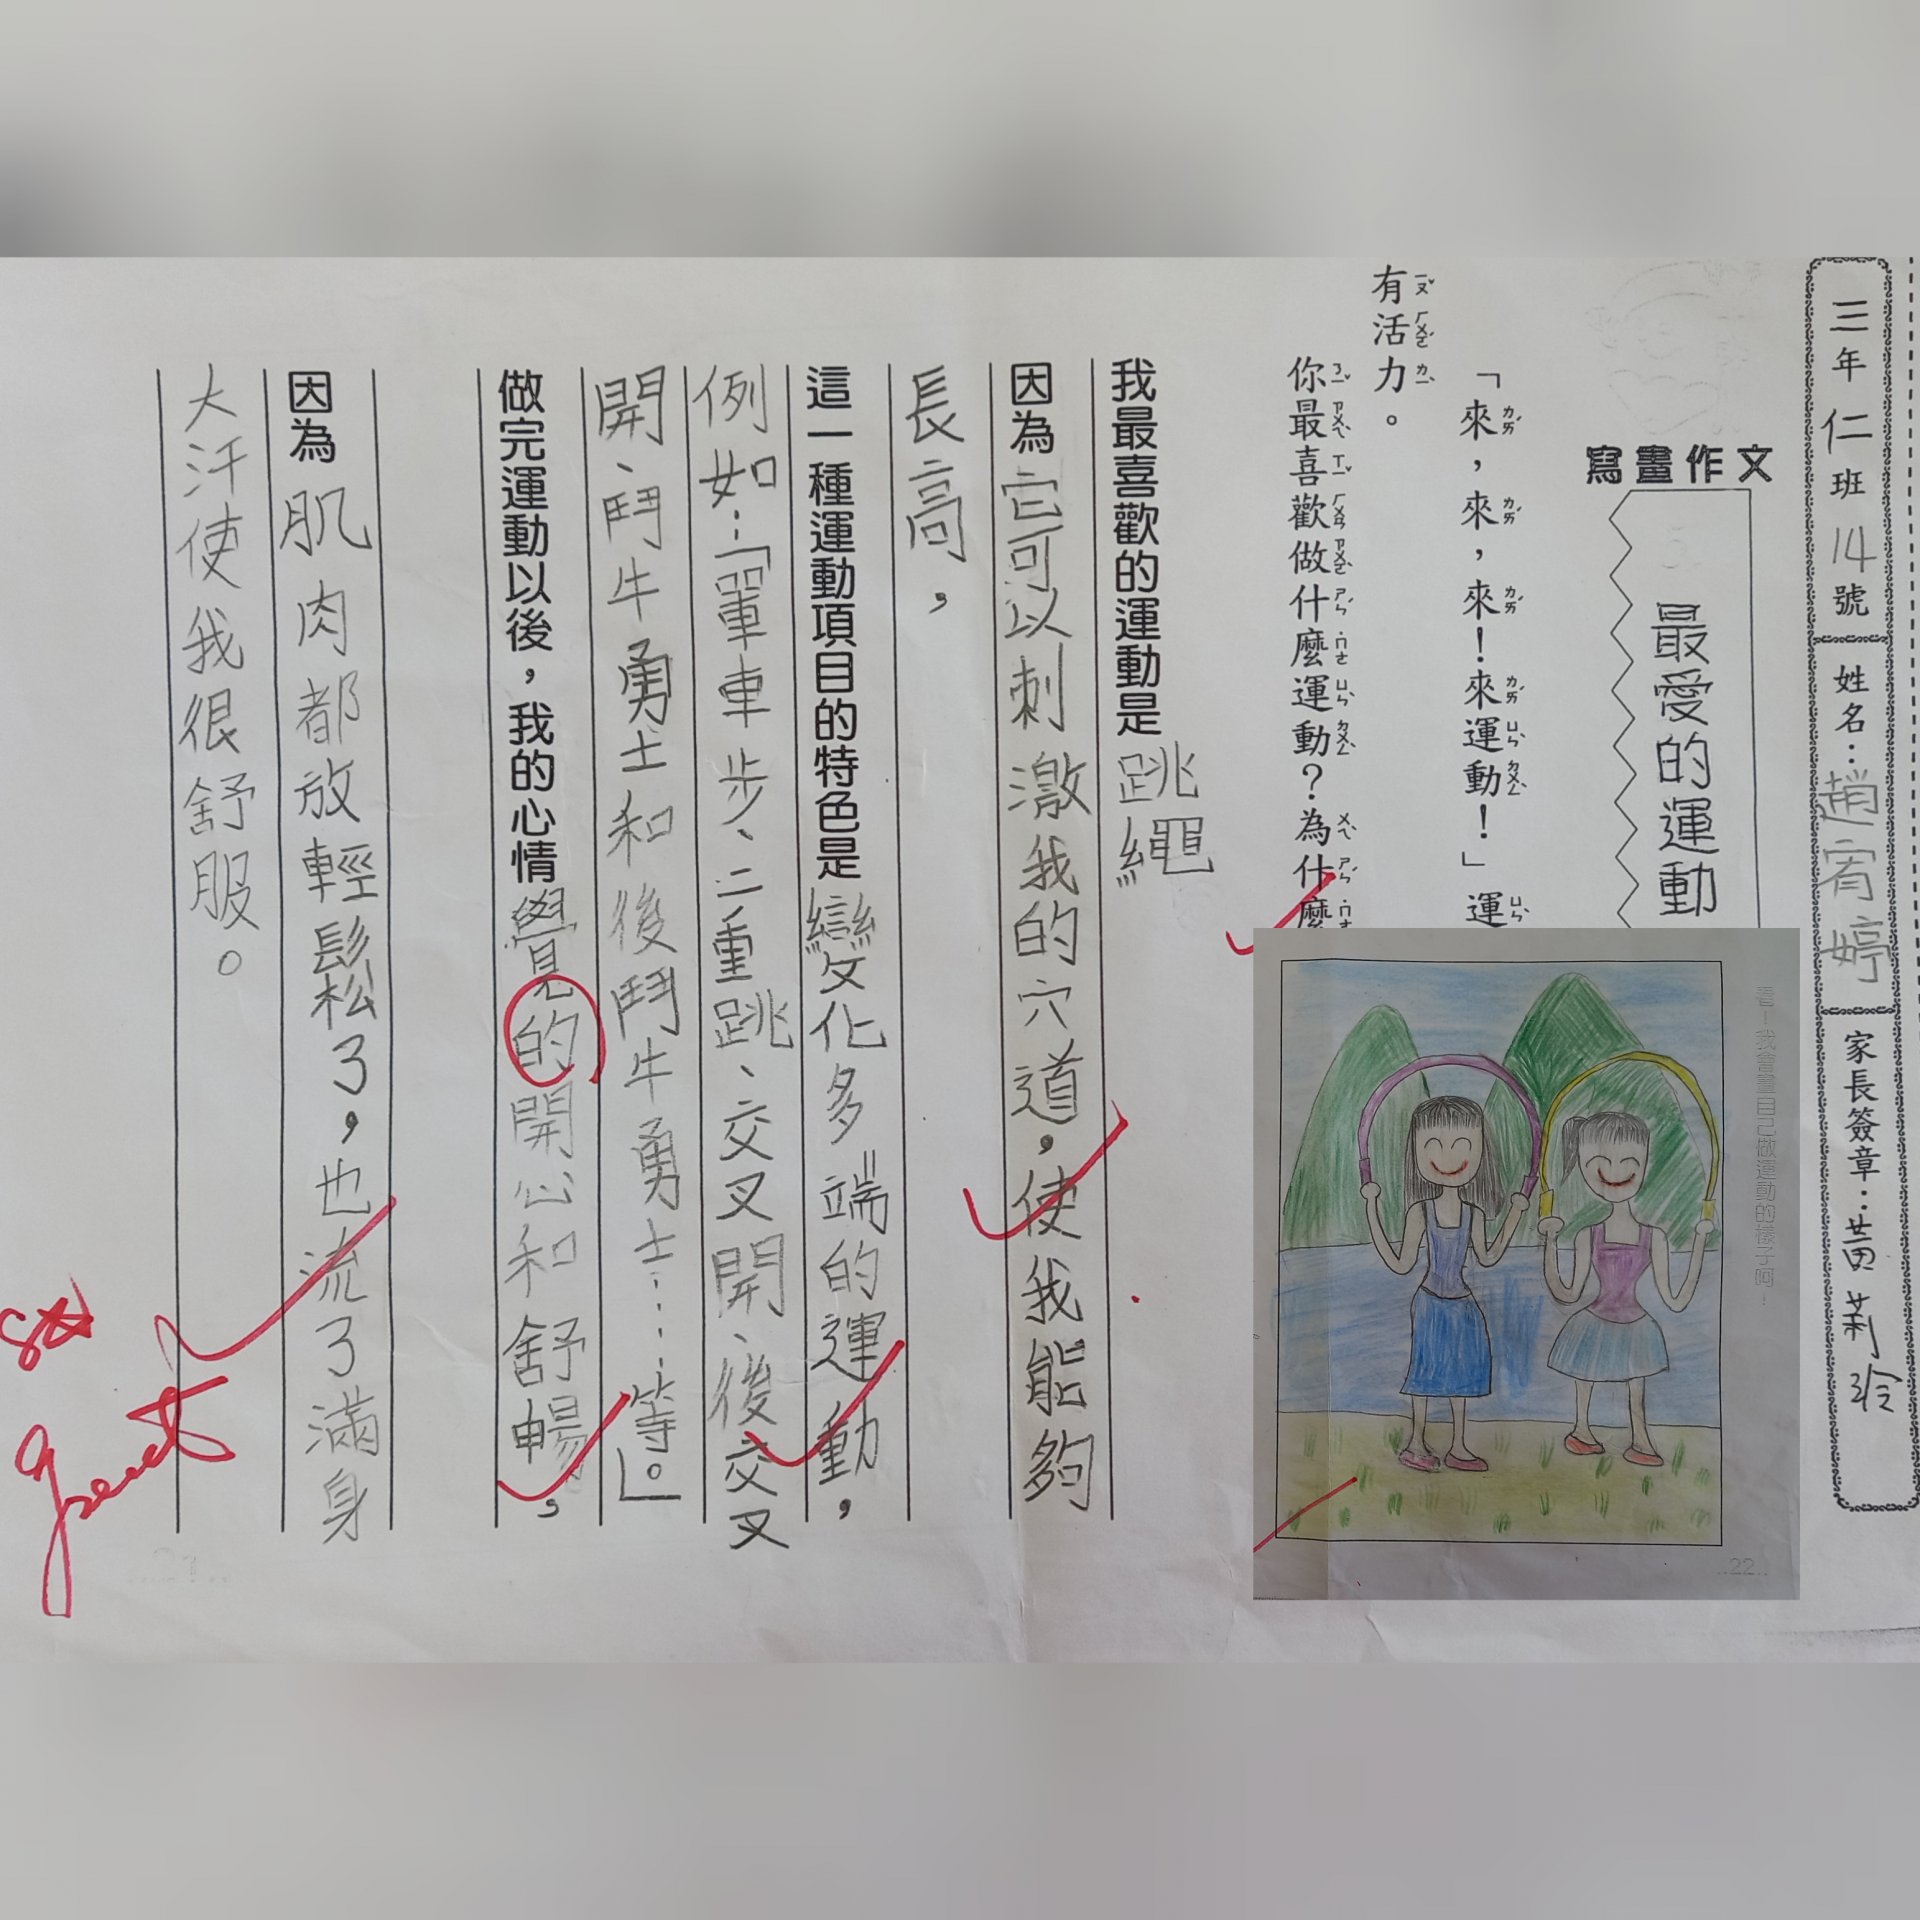 三年仁班14號
姓名：趙宥婷
家長簽章：黃莉玲
寫畫作文
最愛的運動
「來，來，來！來運動！」運
有活力。
你最喜歡做什麼運動？為什麼
我最喜歡的運動是跳繩
因為它可以刺激我的穴道，使我能夠
長高，
這一種運動項目的特色是變化多端的運動，
例如：「單車步、二重跳、交叉開、後交叉
開、鬥牛勇士和後鬥牛勇士……等」。
做完運動以後，我的心情覺的開心和舒暢，
因為肌肉都放輕鬆了，也流了滿身
大汗使我很舒服。
看！我會畫自己做運動的樣子呵！
..22..
Great